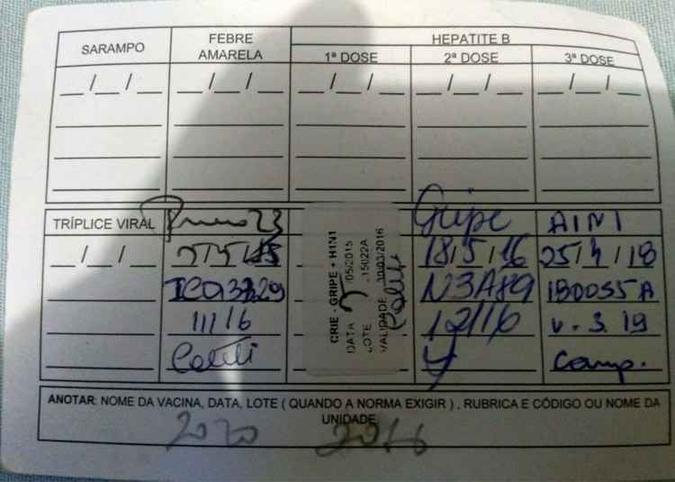 SARAMPO
FEBRE
AMARELA
HEPATITE B
1ª DOSE
2ª DOSE
3ª DOSE
__/__/__ __/__/__ __/__/__ __/__/__ __/__/__
TRÍPLICE VIRAL
Pneumo 23
Gripe
A1N1
__/__/__
18/5/16
25/4/18
N3A89
1B0055A
11/16
12/16
v. 3. 19
Camp.
CRIE - GRIPE + H1N1
DATA /05/2015
LOTE 15022A
VALIDADE 30/03/2016
ANOTAR: NOME DA VACINA, DATA, LOTE ( QUANDO A NORMA EXIGIR ) , RUBRICA E CÓDIGO OU NOME DA
UNIDADE
2020 2016